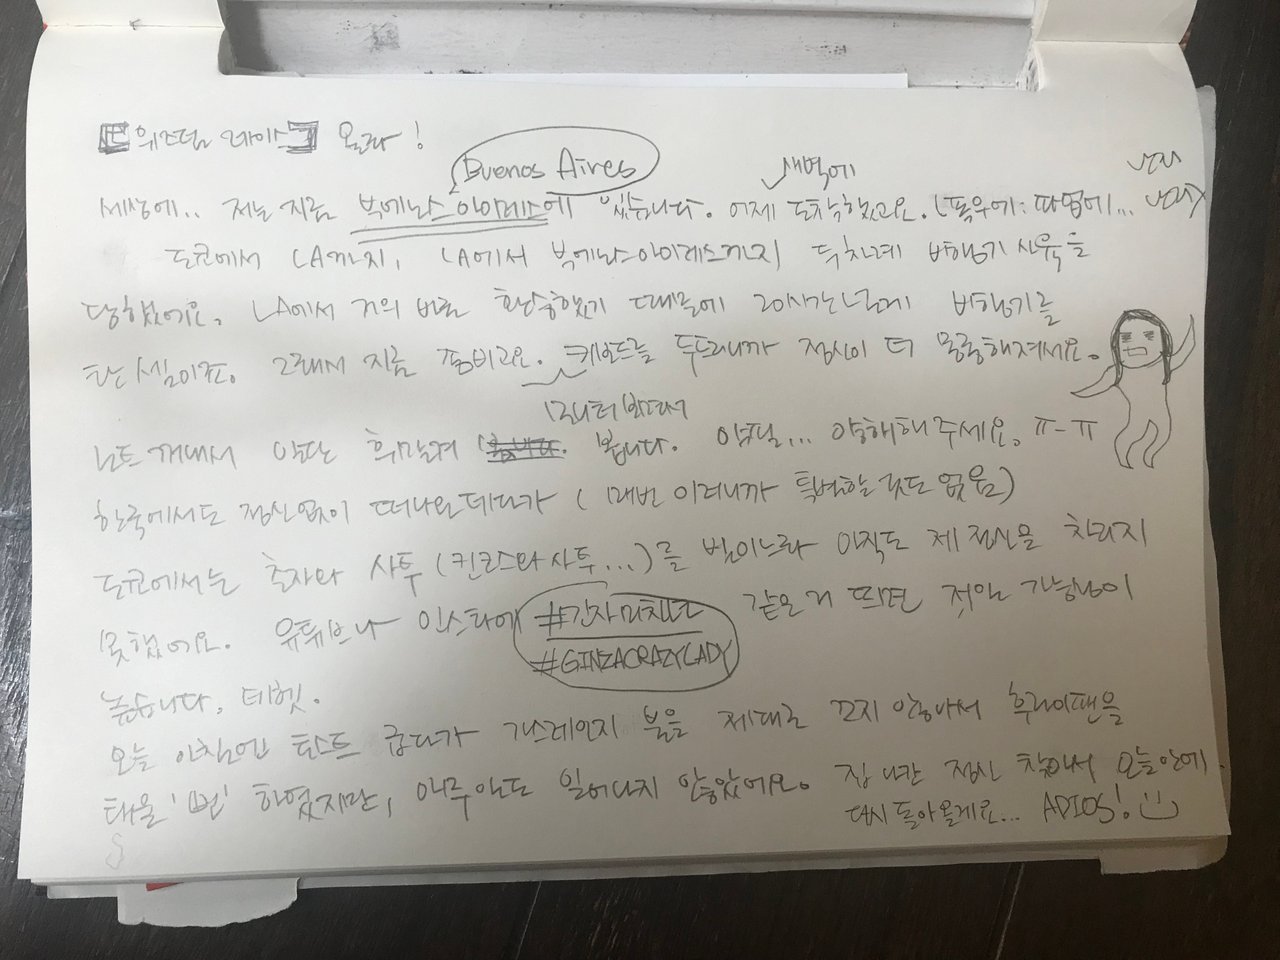 위즈덤 레이스 올라!
Buenos Aires
새벽에
세상에.. 저는 지금 부에노스 아이레스에 있습니다. 어제 도착했고요. (폭우에: 따옴에...
도쿄에서 LA까지, LA에서 부에노스아이레스까지 두차례 비행기 사육을
당했어요. LA에서 거의 바로 환승했기 때문에 20시간 넘게 비행기를
탄 셈이죠. 그래서 지금 좀비고요. 키보드를 두드리니까 정신이 더 몽롱해져서요.
모니터 보면서
노트 꺼내서 일단 휘갈겨 봅니다. 악필... 양해해 주세요. ㅠ-ㅠ
한국에서도 정신없이 떠나온데다가 (매번 이러니까 특별할 것도 없음)
도쿄에서는 혼자와 사투 (킨코스와 사투...)를 벌이느라 아직도 제정신을 차리지
못했어요. 유튜브나 인스타에 #긴자미친년 같은거 뜨면 저일 가능성이
#GINZACRAZYLADY
높습니다, 데헷.
오늘 아침엔 토스트 굽다가 가스레인지 불을 제대로 끄지 않아서 후라이팬을
태울 '뻔' 하였지만, 아무일도 일어나지 않았어요. 집 나간 정신 찾아서 오늘안에
다시 돌아올게요... ADIOS!